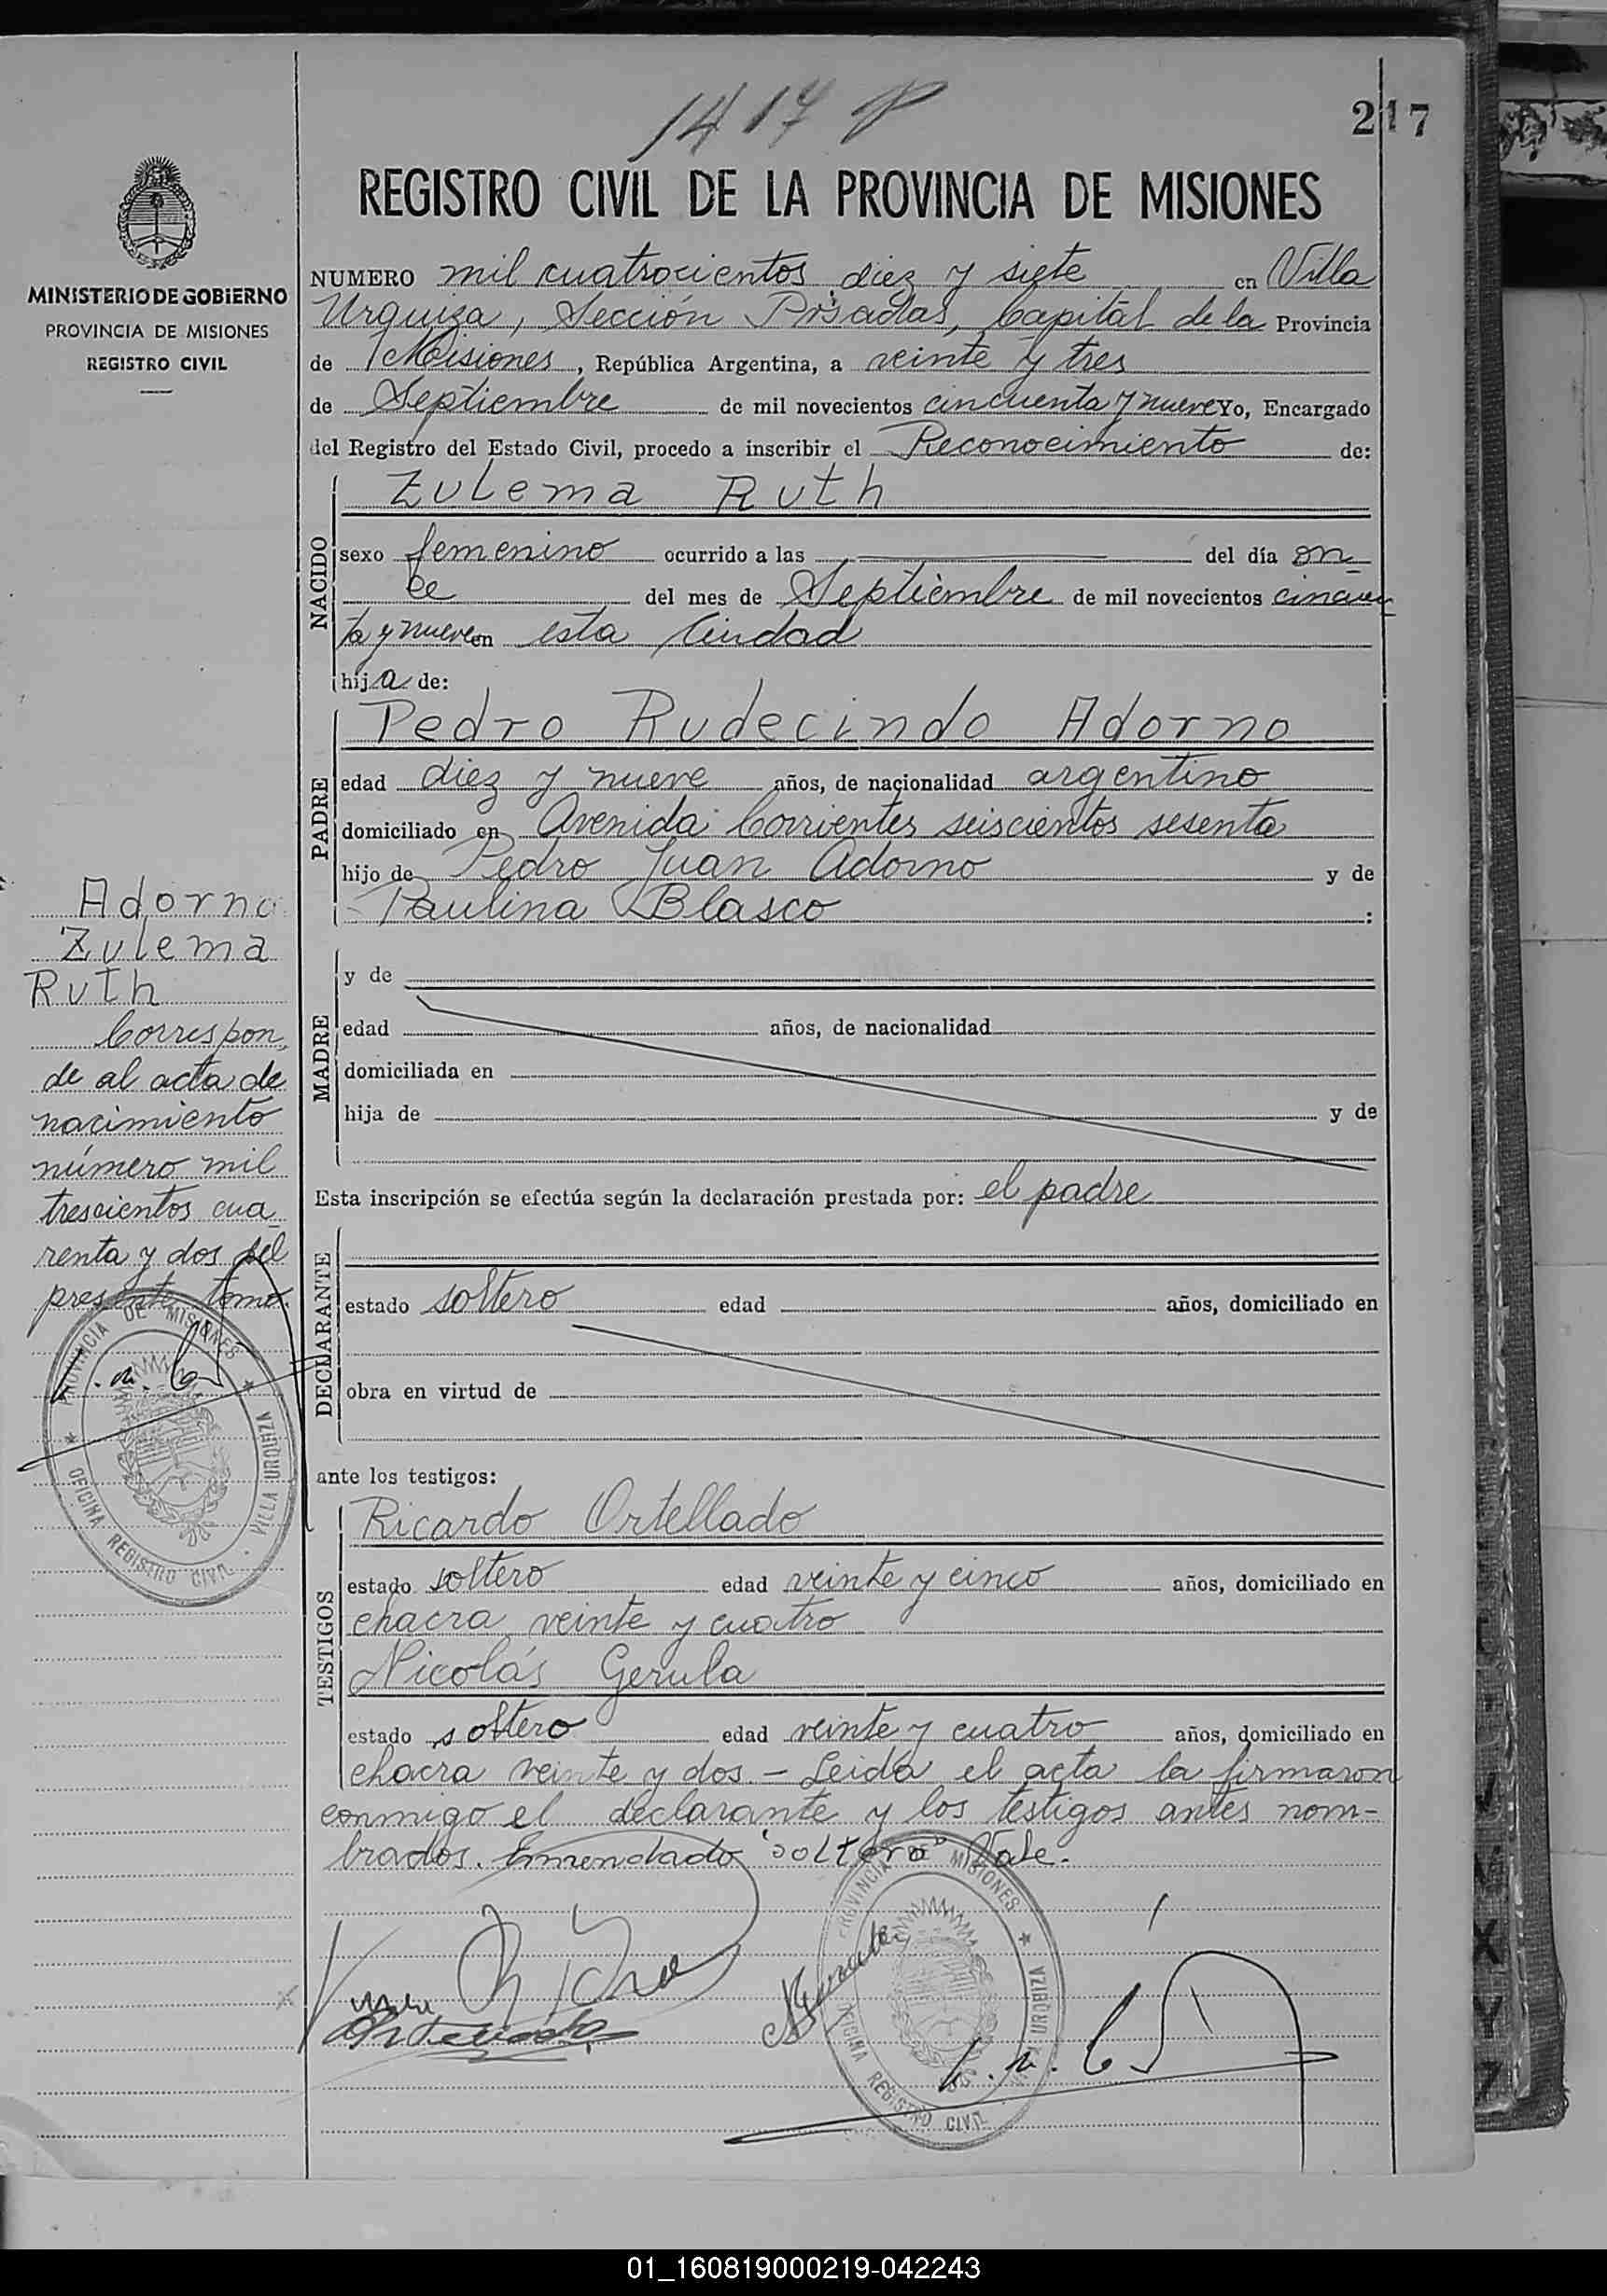 1417
217
REGISTRO CIVIL DE LA PROVINCIA DE MISIONES
MINISTERIO DE GOBIERNO
PROVINCIA DE MISIONES
REGISTRO CIVIL
NUMERO mil cuatrocientos diez y siete en Villa
Urquiza, Sección Posadas, Capital de la Provincia
de Misiones, República Argentina, a veinte y tres
de Septiembre de mil novecientos cincuenta y nueve Yo, Encargado
del Registro del Estado Civil, procedo a inscribir el Reconocimiento de:
NACIDO
Zulema Ruth
sexo femenino ocurrido a las del día on_
ce del mes de Septiembre de mil novecientos cincuen
ta y nueve en esta Ciudad
hija de:
PADRE
Pedro Rudecindo Adorno
edad diez y nueve años, de nacionalidad argentino
domiciliado en Avenida Corrientes seiscientos sesenta
hijo de Pedro Juan Adorno y de
Paulina Blasco :
Adorno
Zulema
Ruth
Correspon_
de al acta de
nacimiento
número mil
trescientos cua_
renta y dos del
presente tomo.
PROVINCIA DE MISIONES
VILLA URQUIZA
OFICINA REGISTRO CIVIL
MADRE
y de
edad años, de nacionalidad
domiciliada en
hija de y de
Esta inscripción se efectúa según la declaración prestada por: el padre
DECLARANTE
estado soltero edad años, domiciliado en
obra en virtud de
ante los testigos:
TESTIGOS
Ricardo Ortellado
estado soltero edad veinte y cinco años, domiciliado en
chacra veinte y cuatro
Nicolás Gerula
estado soltero edad veinte y cuatro años, domiciliado en
chacra veinte y dos. - Leida el acta la firmaron
conmigo el declarante y los testigos antes nom-
brados. Enmendado "soltero" Vale.
PROVINCIA DE MISIONES
VILLA URQUIZA
OFICINA REGISTRO CIVIL
01_160819000219-042243